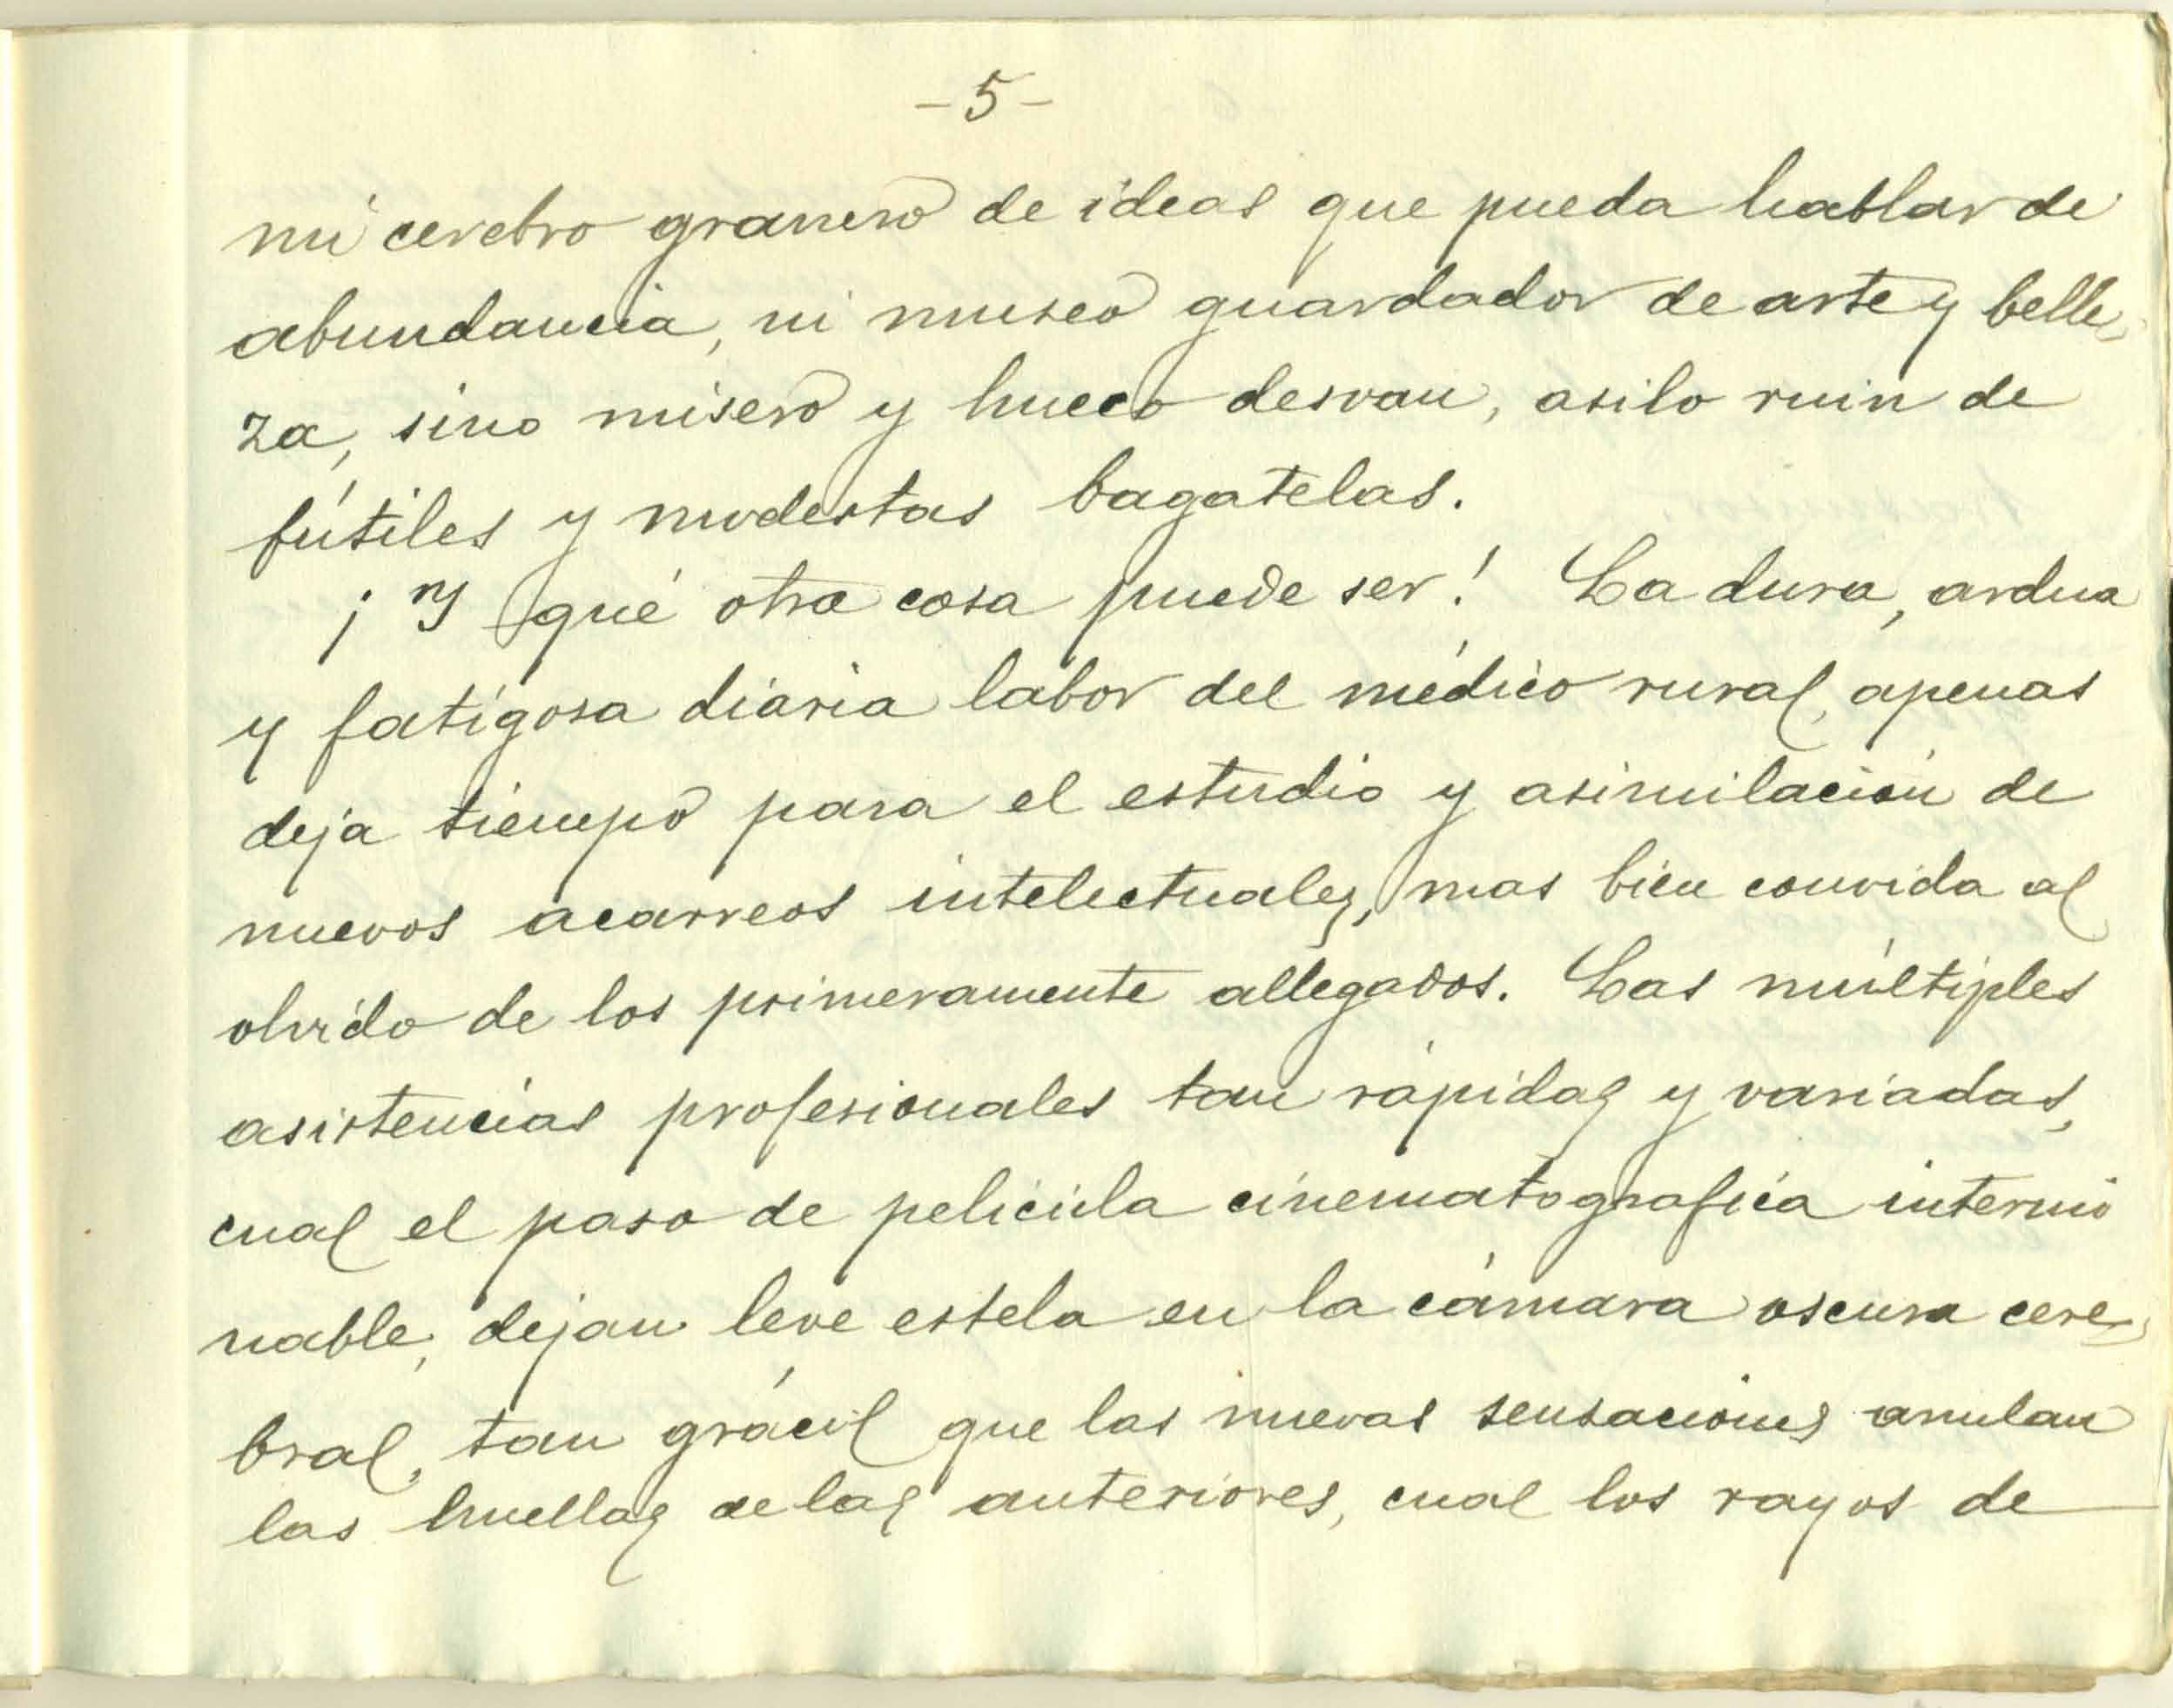 -5-
mi cerebro granero de ideas que pueda hablar de
abundancia, ni museo guardador de arte y belle-
za, sino misero y hueco desvan, asilo ruin de
fútiles y modestas bagatelas.
¡Y qué otra cosa puede ser! La dura, ardua
y fatigosa diaria labor del médico rural, apenas
deja tiempo para el estudio y asimilación de
nuevos acarreos intelectuales, mas bien convida al
olvido de los primeramente allegados. Las múltiples
asistencias profesionales tan rápidas y variadas,
cual el paso de pelicula cinematografica intermi
nable, dejan leve estela en la cámara oscura cere-
bral, tan grácil que las nuevas sensaciones anulan
las huellas de las anteriores, cual los rayos de